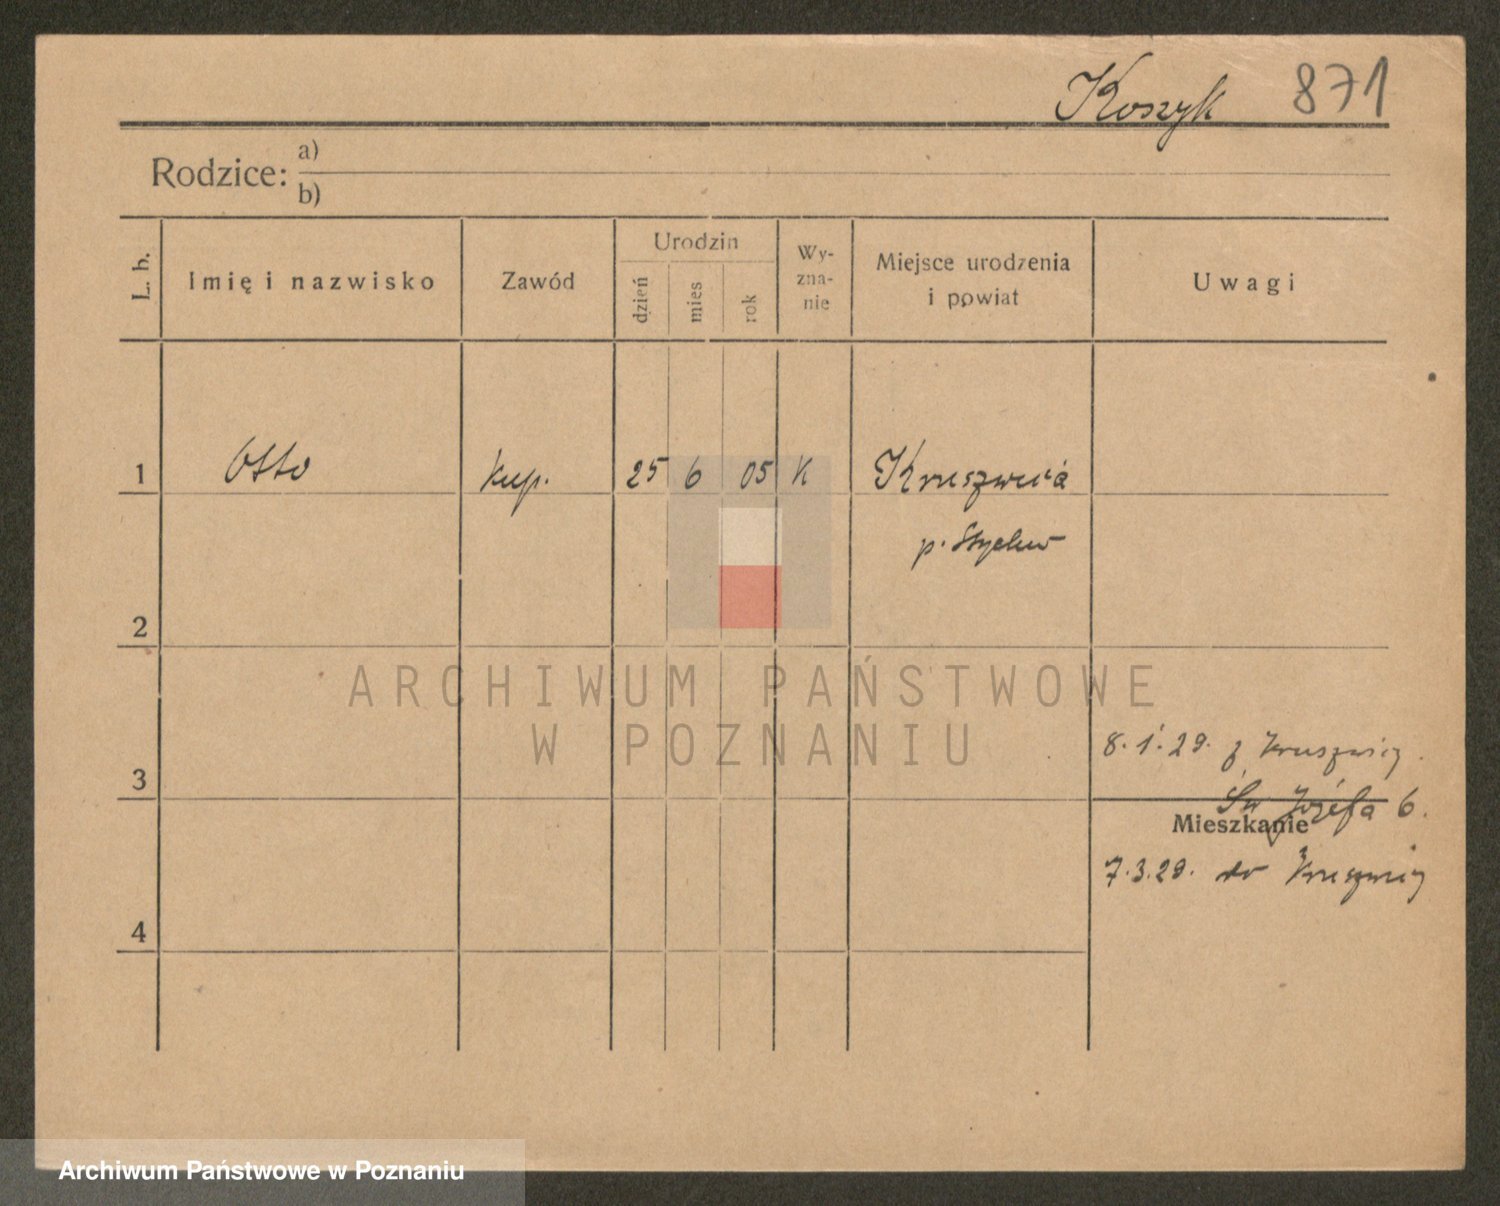 Koszyk 871
Rodzice: a)
b)
L. b. Imię i nazwisko Zawód Urodzin dzień mies rok Wy-zna-nie Miejsce urodzenia i powiat Uwagi
1 Otto kup. 25 6 05 K Kruszwica
p.
2
ARCHIWUM PAŃSTWOWE
W POZNANIU
8.1.29. z Kruszwicy.
3
Św Józefa 6.
Mieszkanie
7.3.29. do Kruszwicy
4
Archiwum Państwowe w Poznaniu